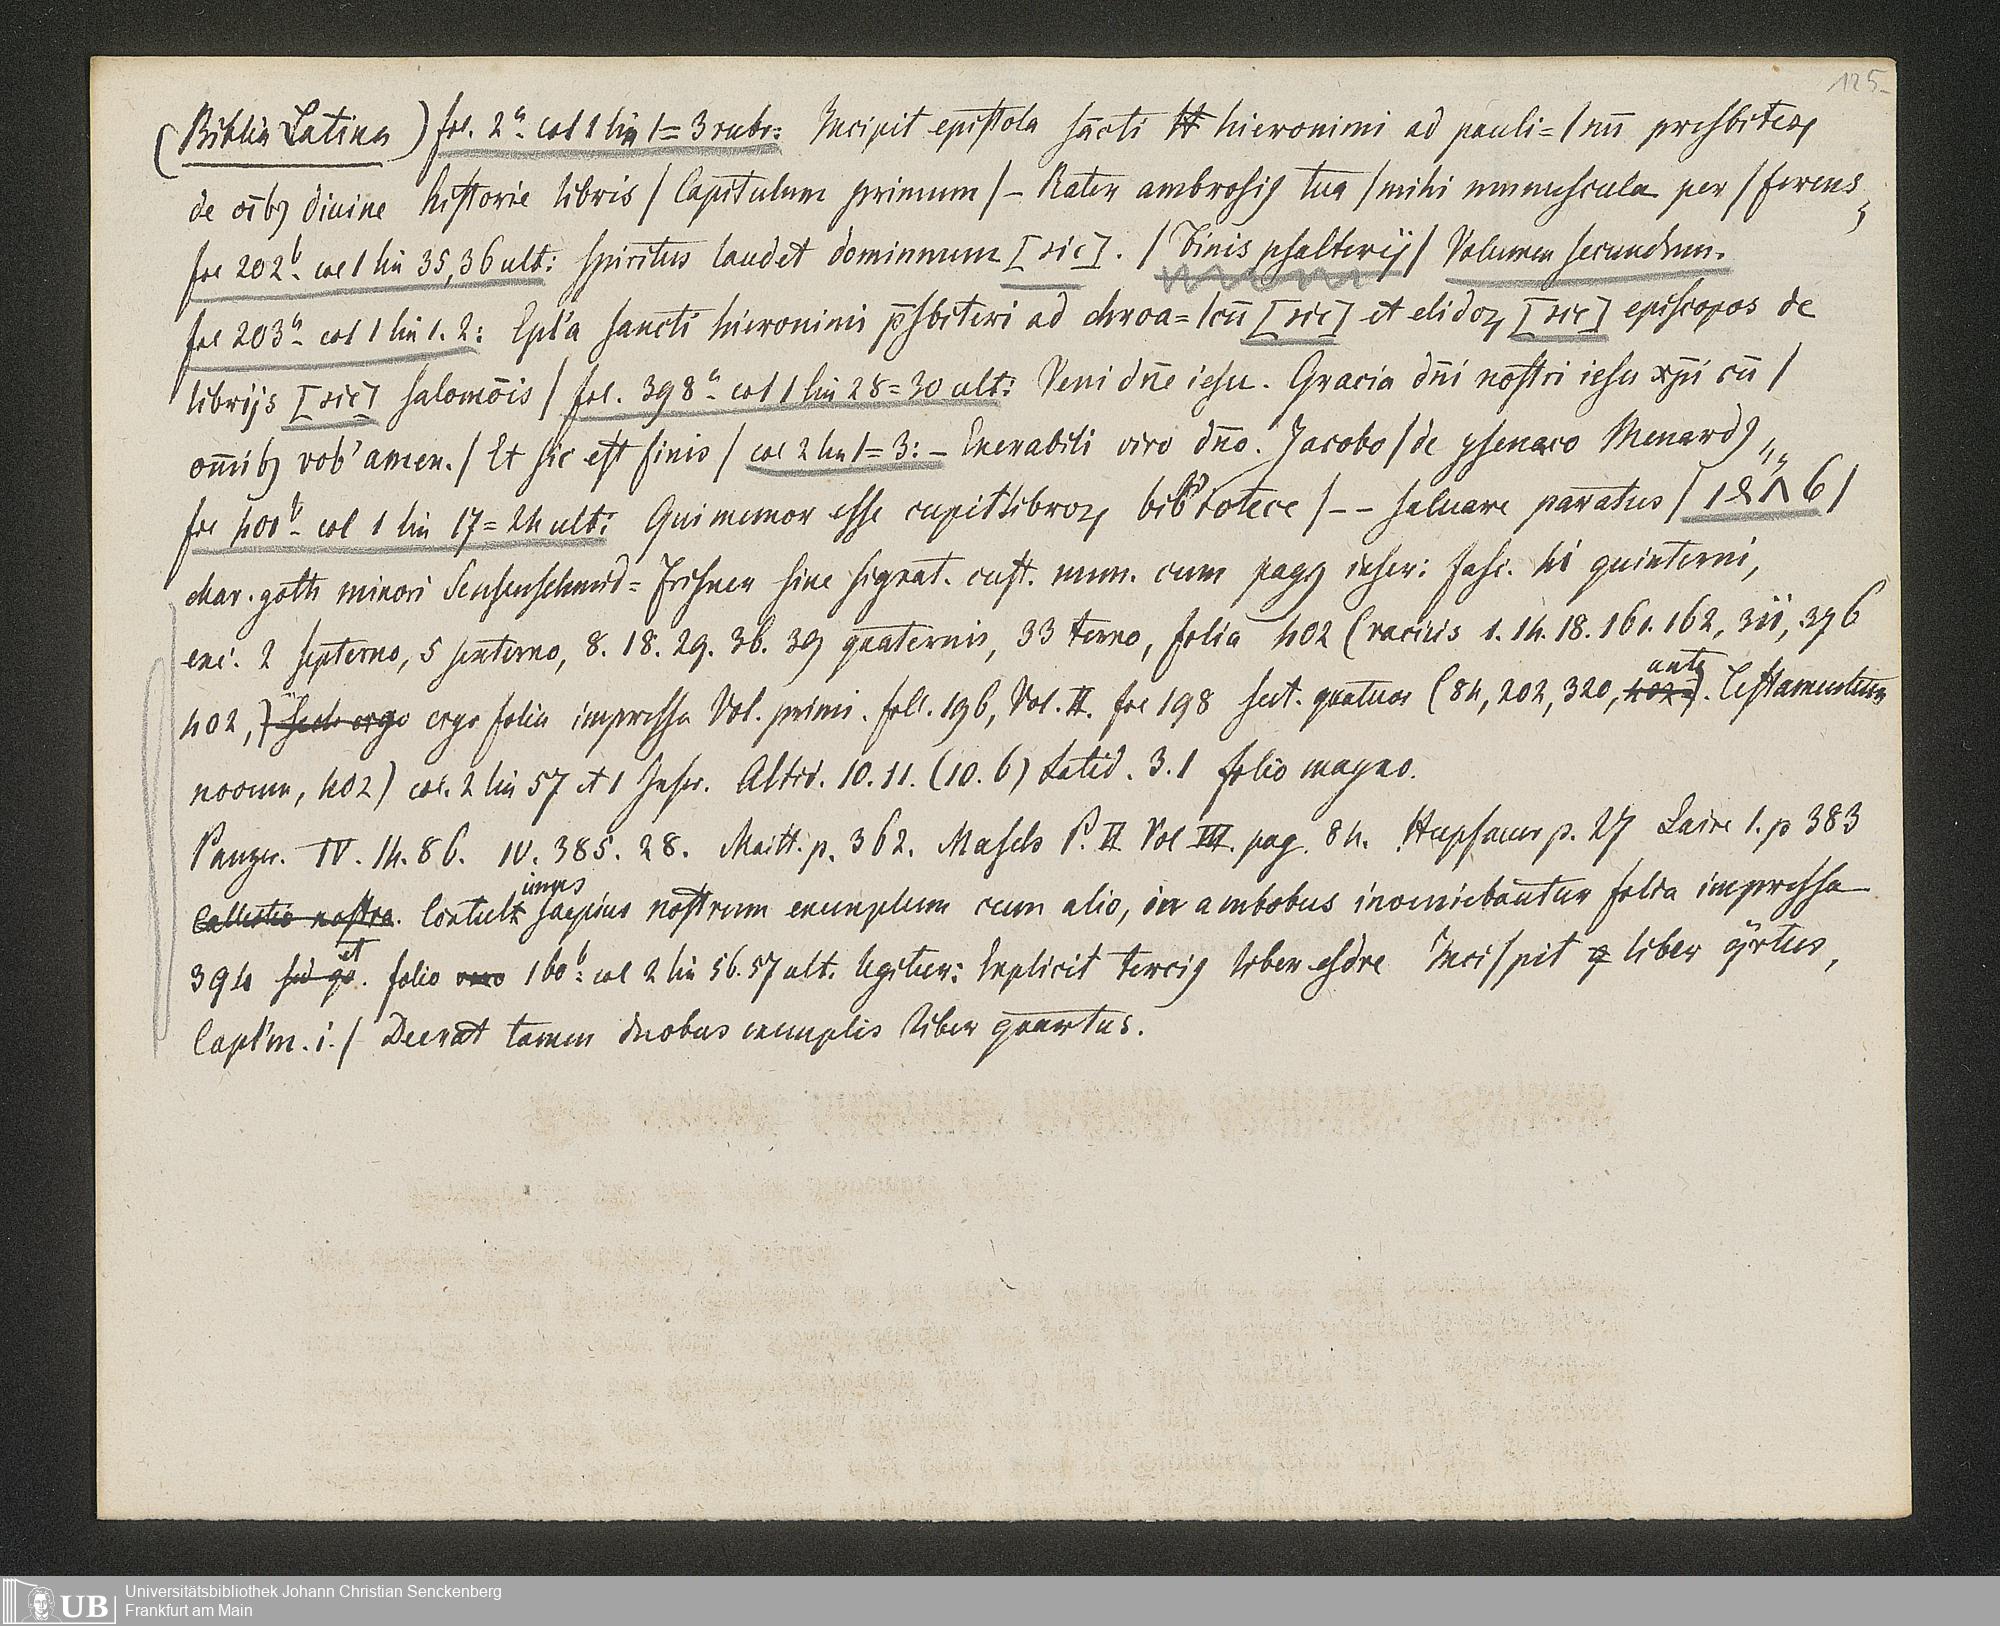 125.
(Biblia Latina) fol. 2ª col 1 lin 1=3 rubr: Incipit epistola sācti hieronimi ad pauli=/nū presbiteꝝ
de oībꝫ diuine historie libris / Capitulum primum /- Rater ambrosiꝯ tua / mihi munuscula per / ferens,
fol 202ᵇ col 1 lin 35,36 ult: spiritus laudet dominnum [sic]. / Finis psalterij / Volumen secundum.
fol 203ª col 1 lin 1.2: Epl'a sancti hieronimi p̄sbiteri ad chroa=/cū [sic] et elidoꝝ [sic] episcopos de
librijs [sic] salomōis / fol. 398ª col 1 lin 28=30 ult: Veni dn̄e iesu. Gracia dn̄i nostri iesu xp̄i cū /
om̄ibꝫ vob' amen. / Et sic est finis / col 2 lin 1=3: - Enerabili viro dn̄o. Jacobo / de ysenaco Menardꝯ,,
fol 401ᵇ col 1 lin 17=24 ult: Qui memor esse cupit libroꝝ bibliotece /-- saluare paratus / 1ꝝɅ6 /
char. goth minori Sensenschmid=Frisner sine signat. cust. num. cum pagꝫ inscr: fasc. 41 quinterni,
exc. 2 septerno, 5 sexterno, 8. 18. 29. 36. 39 quaternis, 33 terno, folia 402 (vacuis 1. 14. 18. 161. 162, 311, 376
402,) ergo folia impressa Vol. primi. foll. 196, Vol. II. fol 198 sect. quatuor (84, 202, 320, ante Testamentum
novum, 402) col. 2 lin 57 et 1 Inscr. Altid. 10. 11. (10. 6) Latid. 3. 1 folio magno.
Panzer. IV. 14. 86. IV. 385. 28. Maitt. p. 362. Masch P. II Vol III. pag. 84. Hupfauer p. 27 Laire 1. p 383
Collectio nostra. Contuli saepius nostrum exemplum cum alio, in ambobus inveniebantur folia impressa
394 et folio 160ᵇ: col 2 lin 56.57 ult. legitur: Explicit terciꝯ liber esdre Inci/pit liber q̈rtus,
Capl'm. i. / Deerat tamen duobus exemplis liber quartus.
UB Universitätsbibliothek Johann Christian Senckenberg
Frankfurt am Main